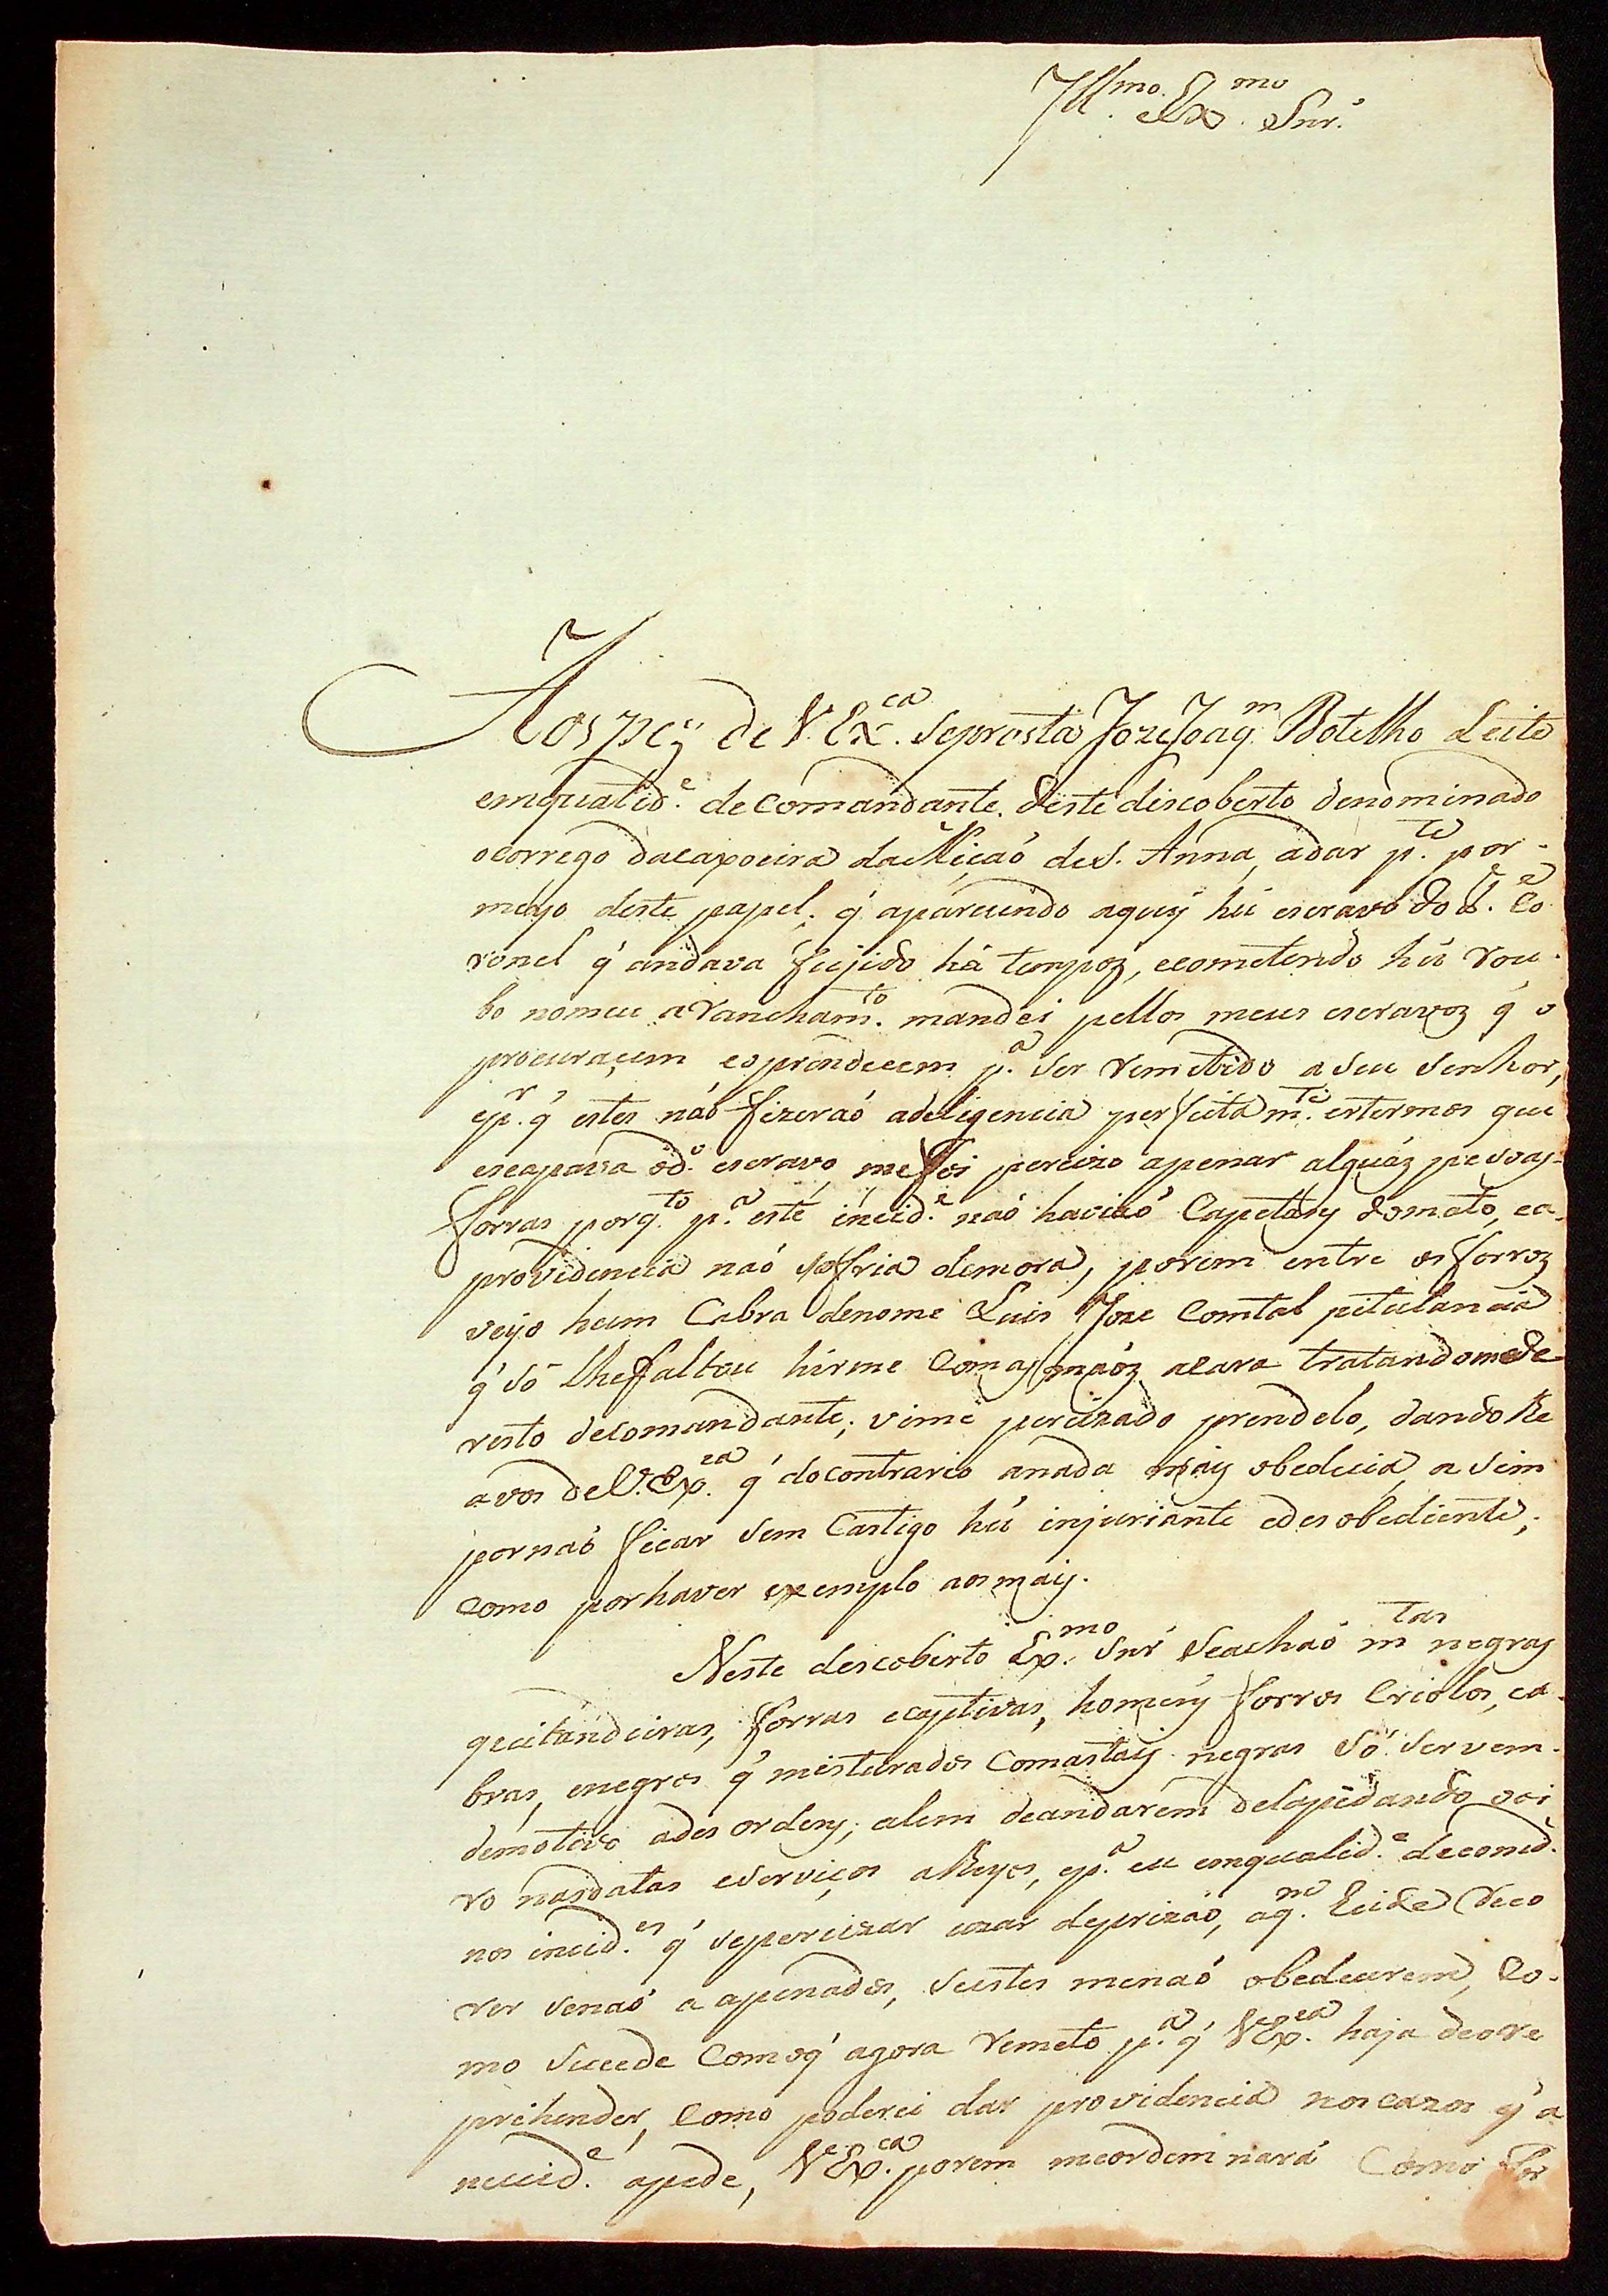 Ill.mo Ex.mo Snr.
Aos pez de V. Ex.ca se prosta Joze Joaq.m Botelho Leite
emqualid.e de Comandante deste discoberto denominado
ocorrego dacapoeira da Miçaõ de S. Anna, adar p.te por
meyo deste papel, q̃ aparcendo aquy hũ escravo do S. Co
ronel q̃ andava fujido há tempoz, ecometendo hũ rou
bo nomeu aRancham.to mandei pellos meus escravoz q̃ o
procuraçem eoprendecem p.a ser remetido a seu senhor,
ep.r q̃ estes naõ fizeraõ adeligencia perfeitam.te estermos que
escapava od.o escravo, mefoi percizo apenar alguáz pesoas
forras porq.to p.a este incid.e naõ haviaõ Capetaẽs domato, ea
providencia naõ sofria demora, porem entre osforroz
veyo hum Cabra denome Luis Joze Comtal pitulancia
q̃ só lhefaltou hirme Comas maõz acara tratandomede
resto decomandante; vime percizado prendelo, dandolhe
avos de V. Ex.ca q̃ docontrario anada mais obedecia, asim
pornaõ ficar sem Castigo hũ injuriante edesobediente,
Como porhaver exemplo aosmais.
Neste descoberto Ex.mo Snr Seachaõ m.tas negras
quitandeiras, forras ecaptivas, homens forros Criolos, ca
bras, enegros q̃ misturados Comastais negras só servem
demotivo ades ordens; alem deandarem delapidando ooi
ro nasdatas eserviços alheyos, ep.a eu emqualid.e decomd.e
nos incid.es q̃ sepercizar uzar deprizaõ, aq.m heide Reco
rer senaõ a apenados, sestes menaõ obedecerem, Co
mo sucede Comoq̃ agora remeto p.a q̃ V Ex.ca haja deore
prihender, Como poderei dar providencia nos cazos q̃ a
necid.e apede, V Ex.ca porem meordeminará Como for